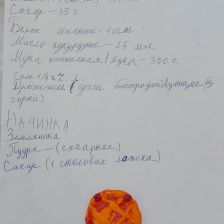 Сахар – 35 г
Белок яичный – 1 шт.
Масло кукурузное – 25 мл
Мука пшеничная / Мука – 300 г
Соль 1/4 ч.
Дрожжи (сухие быстродействующие)
НАЧИНКА
Земляника
Пудра – (сахарная)
Сахар (1 столовая ложка)